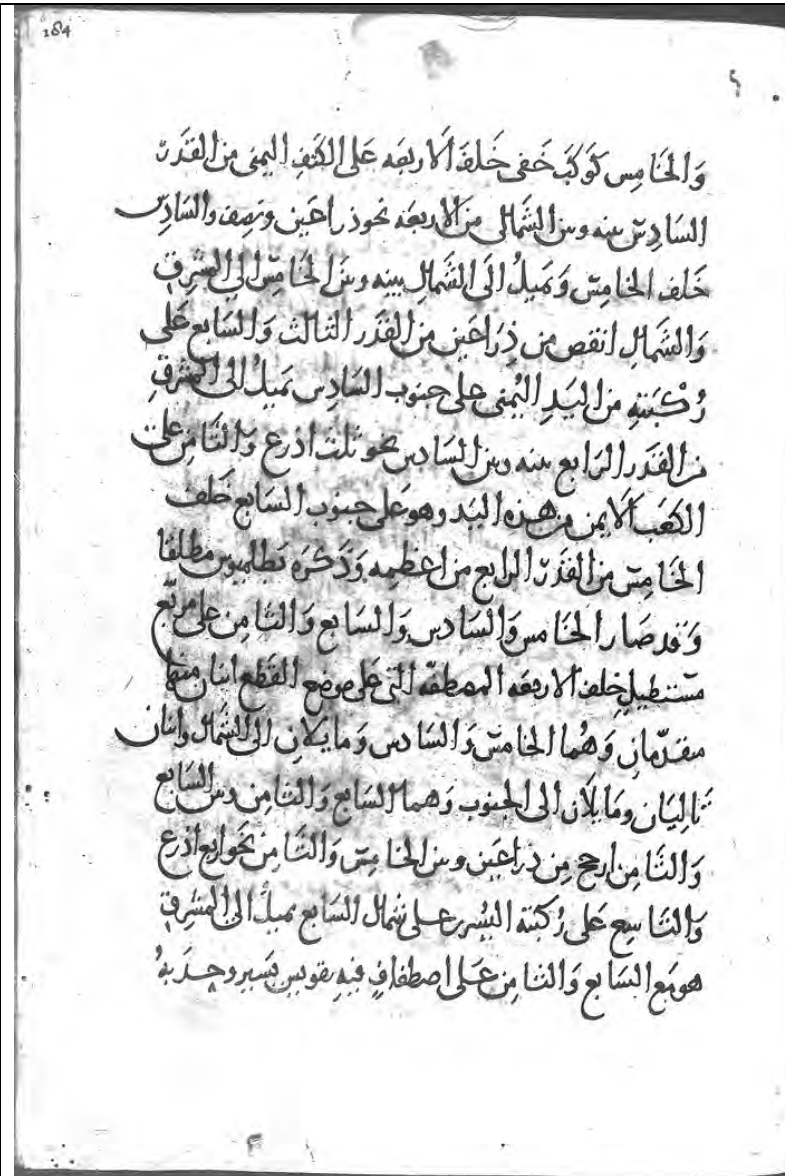 184
وَالخَامِس كَوكَبٌ خَفى خَلفَ الاربعَه عَلى الكتفِ اليمنى مِن القَدر
السَادِسِ بينه وبين الشمالى مِن الاربعه نحو ذراعَين ونصف والسَادِس
خَلف الخامِسِ وَيميلُ الَى الشَّمالِ بينه وبين الخامِسِ الى المشرق
وَالشمالِ انقص من ذِرَاعَين مِن القَدر الثالث وَالسَابع عَلى
رُكبَتِهِ مِن اليَدِ اليُمنى على جنوب السَادِس يميلُ الى المشرقِ
من القَدر الرَابع بينه وبين السَادس نحو ثلث اذرع وَالثَامن على
الكعَب الايمن من هذه اليَد وهو عَلى جنوب السَابع خَلف
الخَامِس مِن القَدر الرابع من اعظمِه وَذَكَرَه بَطلميوس مطلقًا
وَقد صَار الخَامس وَالسَادس وَالسَابع وَالثَامن على مربَّع
مستَطيلٍ خلف الاربعَه المصطفّه التى عَلى موضع القَطع اثنان منها
مقدّمان وَهُما الخَامس وَالسَادس وَمايلان الى الشمال واثنان
تَالِيَان ومَايلَان الى الجنوب وَهما السَابع وَالثامن وبين السَابع
وَالثَامن ارجح مِن ذراعَين وبين الخامِس وَالثَامن نحو اربع اذرع
وَالتَاسِع عَلى رُكبَته اليُسرى على شمال السَابع يميلُ الى المشرق
هو مَع السَابع وَالثامن عَلى اصطفافٍ فيه تقويس يَسير وحِدَبة